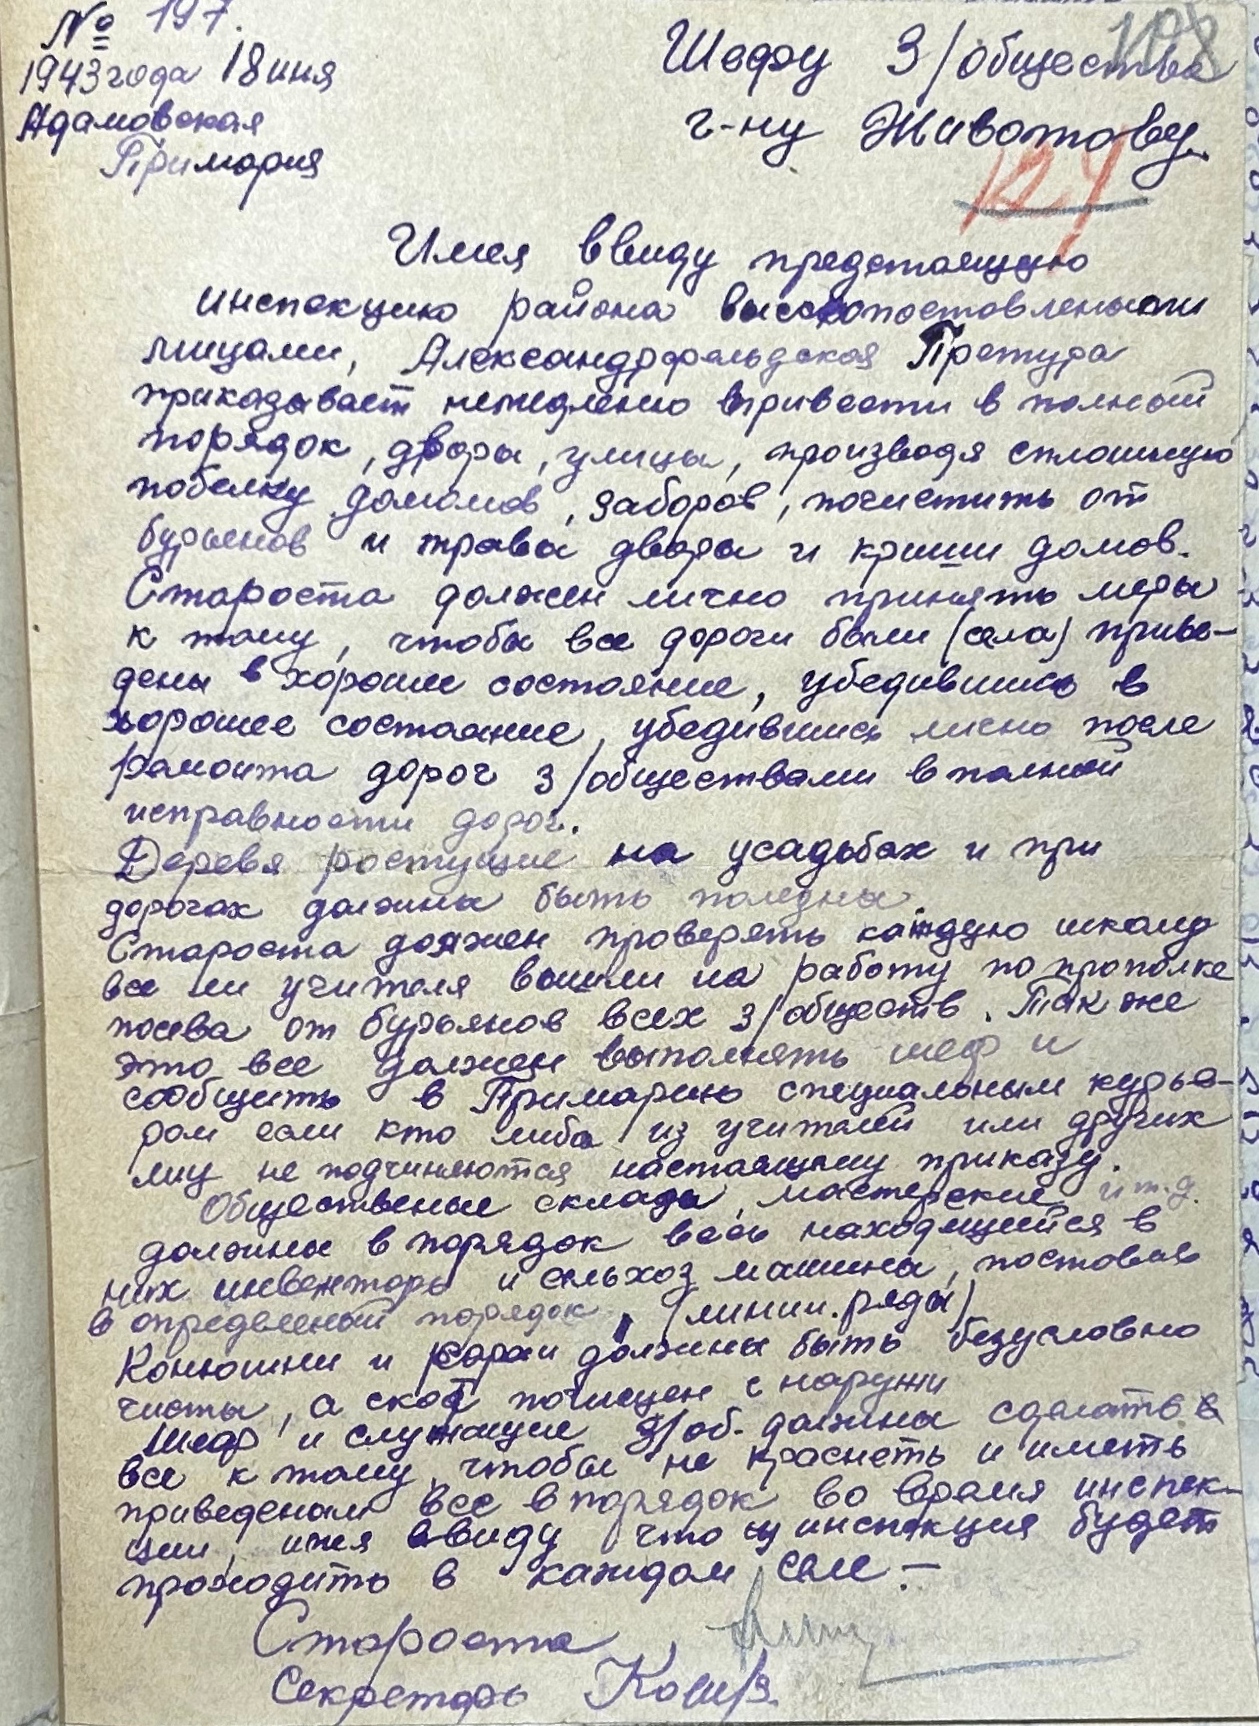 № 197.
1943 года 18 иня
Адамовская
Примария
Шефу З/общества
г-ну Животову
108
124
Имея ввиду предстоящую
инспекцию района высокопоставлеными
лицами, Александрфельдская Претура
приказывает немедлено привести в полный
порядок, дворы, улицы, производя сплошную
побелку домомов, заборов, почистить от
бурьянов и травы дворы и криши домов.
Староста должен лично принять меры
к тому, чтобы все дороги были (села) приве-
дены в хороши состояние, убедившись в
хорошее состоание, убедившись лисно после
ремонта дорог З/обществами в полной
исправности дорог.
Деревя ростущие на усадьбах и при
дорогах должны быть полезны.
Староста должен проверять каждую школу
все ли учителя вышли на работу по прополке
посева от бурьянов всех З/обществ. Так же
это все должен выполнять шеф и
сообщить в Примарию специальным курье-
ром если кто либо из учителей или других
лиц не подчиняются настаящему приказу.
Общественые склады, мастерские и т.д.
должны в порядок весь находящийся в
них инвентарь и сельхоз машины, поставив
в опредвееный порядок, (линии. ряды)
Конюшни и сараи должны быть безусловно
чисты, а скот почищен с наружи
Шеф и служащие З/об. должны сделать
все к тому, чтобы не краснеть и иметь
приведеном все в порядок во время инспек-
ции, имея ввиду что инспекция будет
проходить в каждом селе. —
Староста
Секретарь